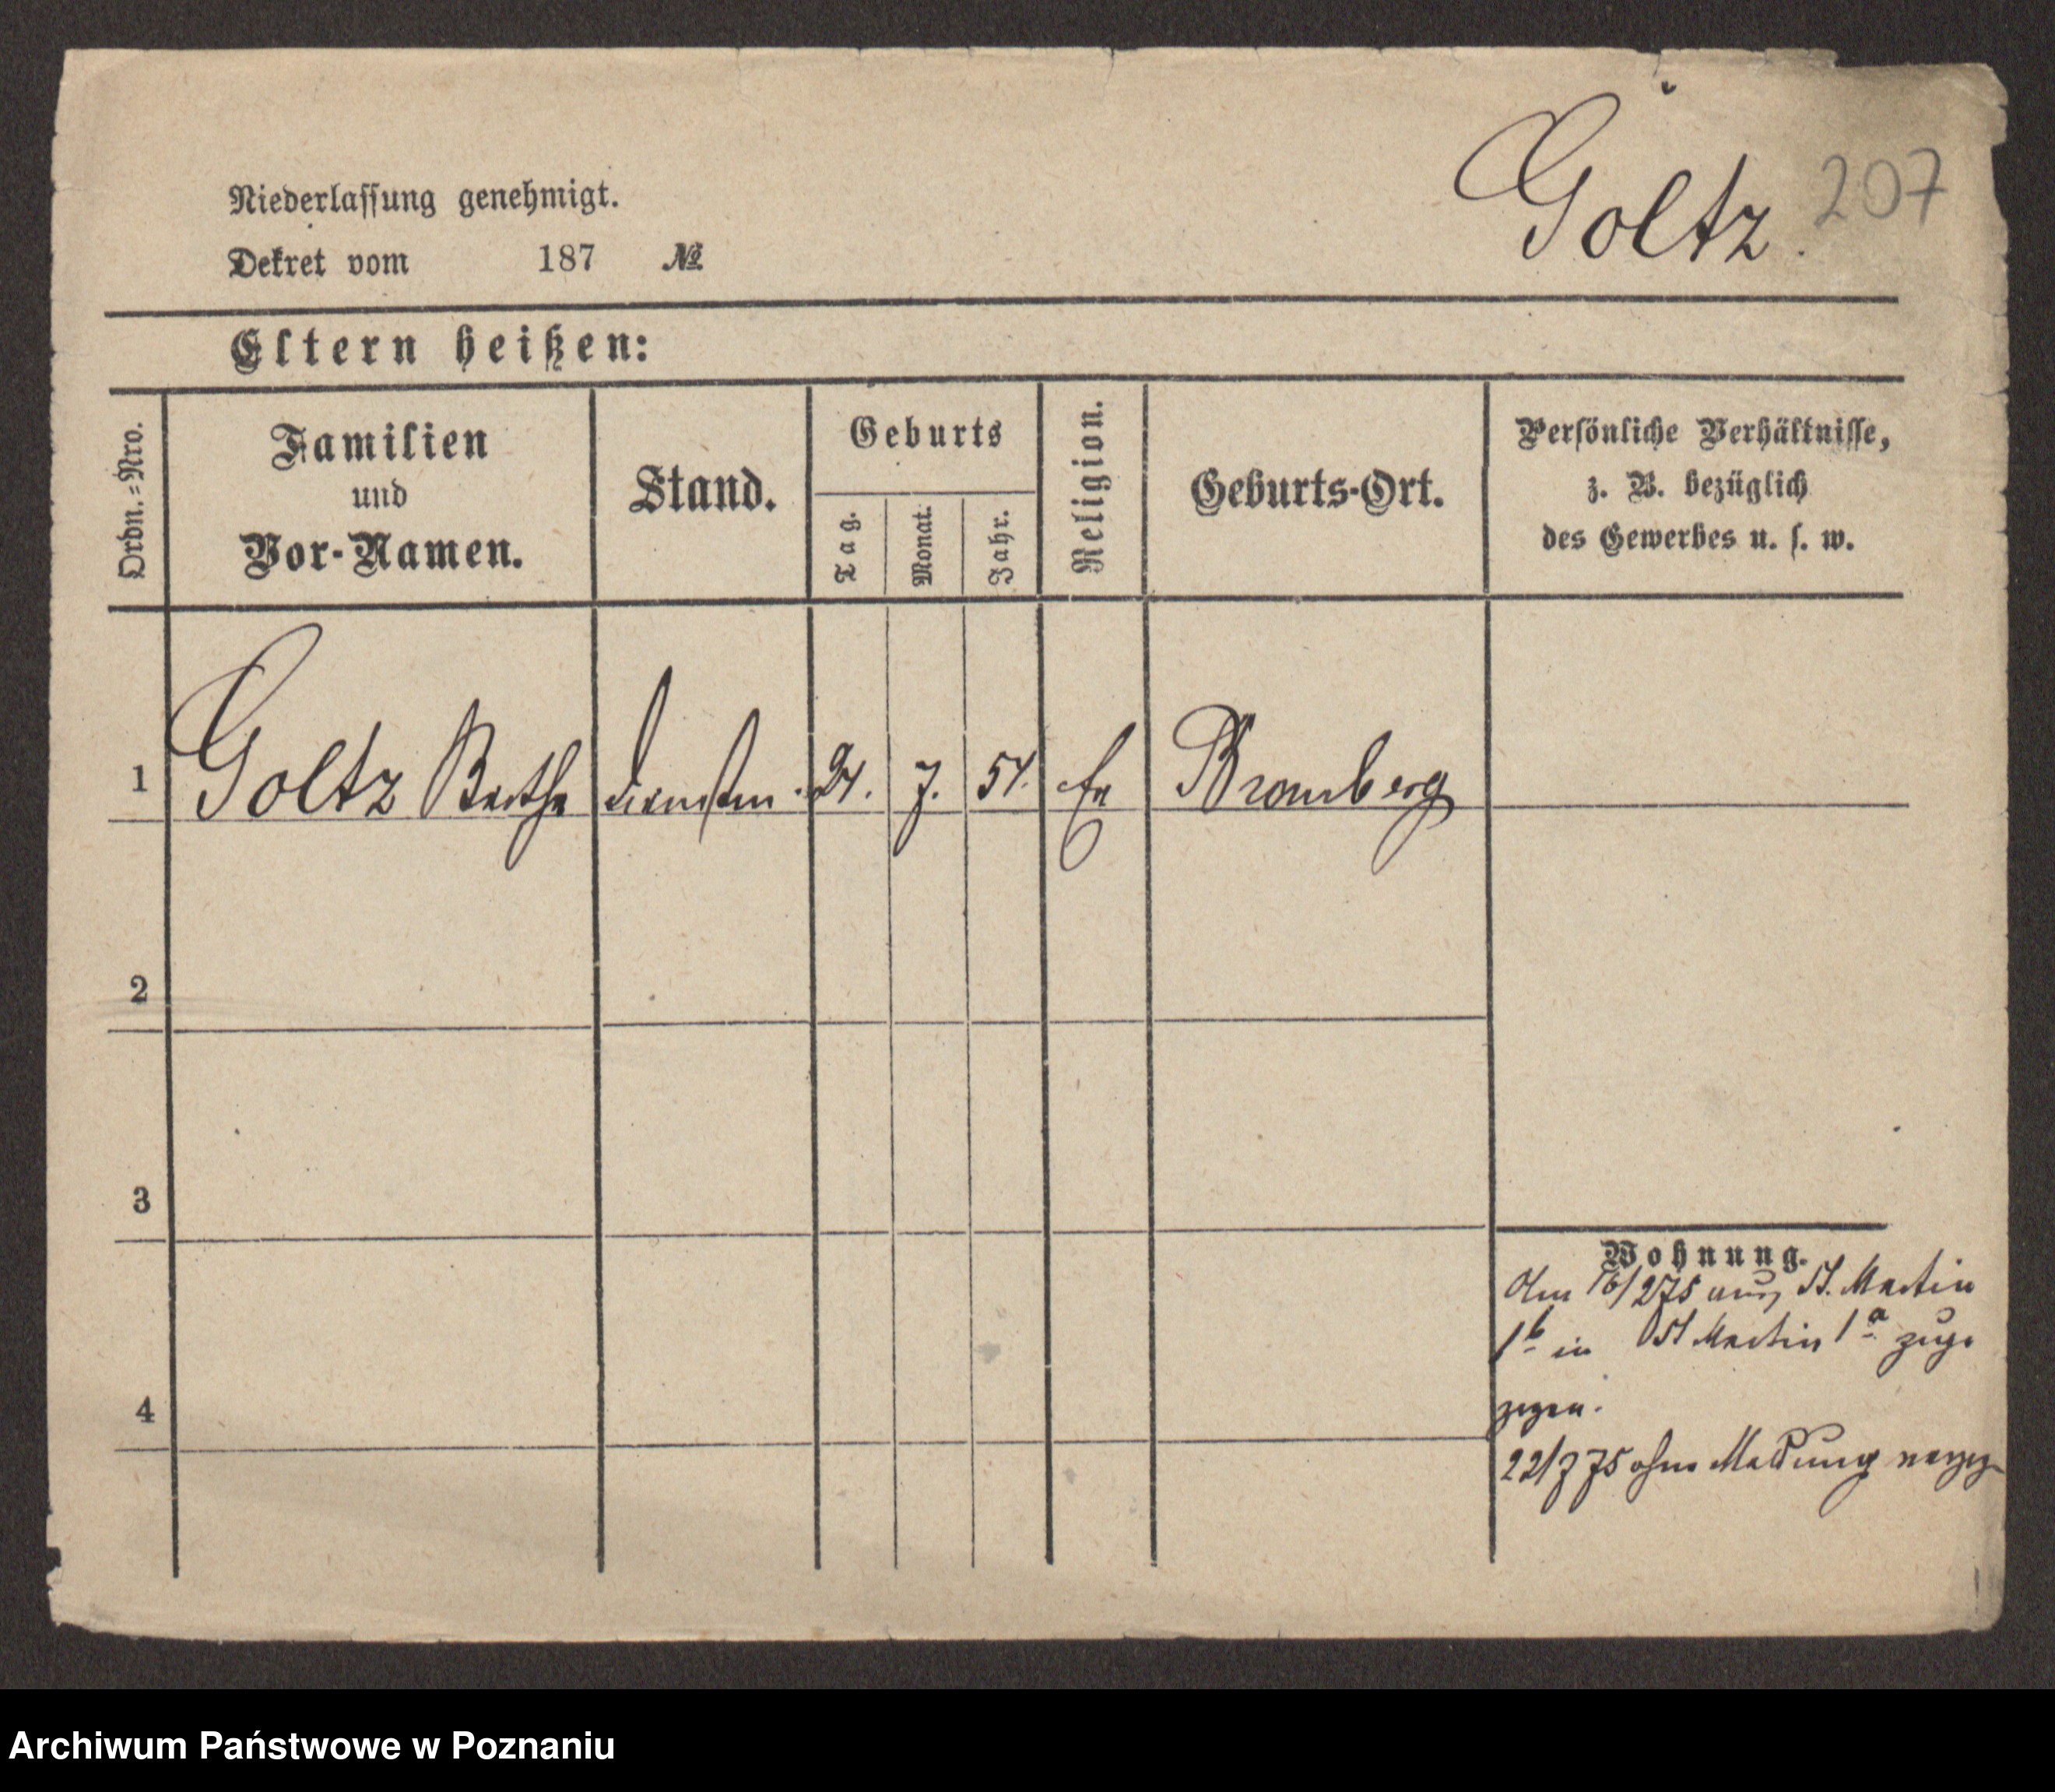 Goltz. 207
Niederlassung genehmigt.
Dekret vom 187 №
Eltern heißen:
Ordn.=Nro.
Familien
und
Vor-Namen.
Stand.
Geburts
Tag.
Monat.
Jahr.
Religion.
Geburts-Ort.
Persönliche Verhältnisse,
z. B. bezüglich
des Gewerbes u. s. w.
1 Goltz Bertha 24. 7. 54. Bromberg
2
3
4
Wohnung.
Am 16/2 75 aus St. Martin
1b in St Martin 1a zuge
zogen.
22/7 75 ohne Meldung verzog
Archiwum Państwowe w Poznaniu